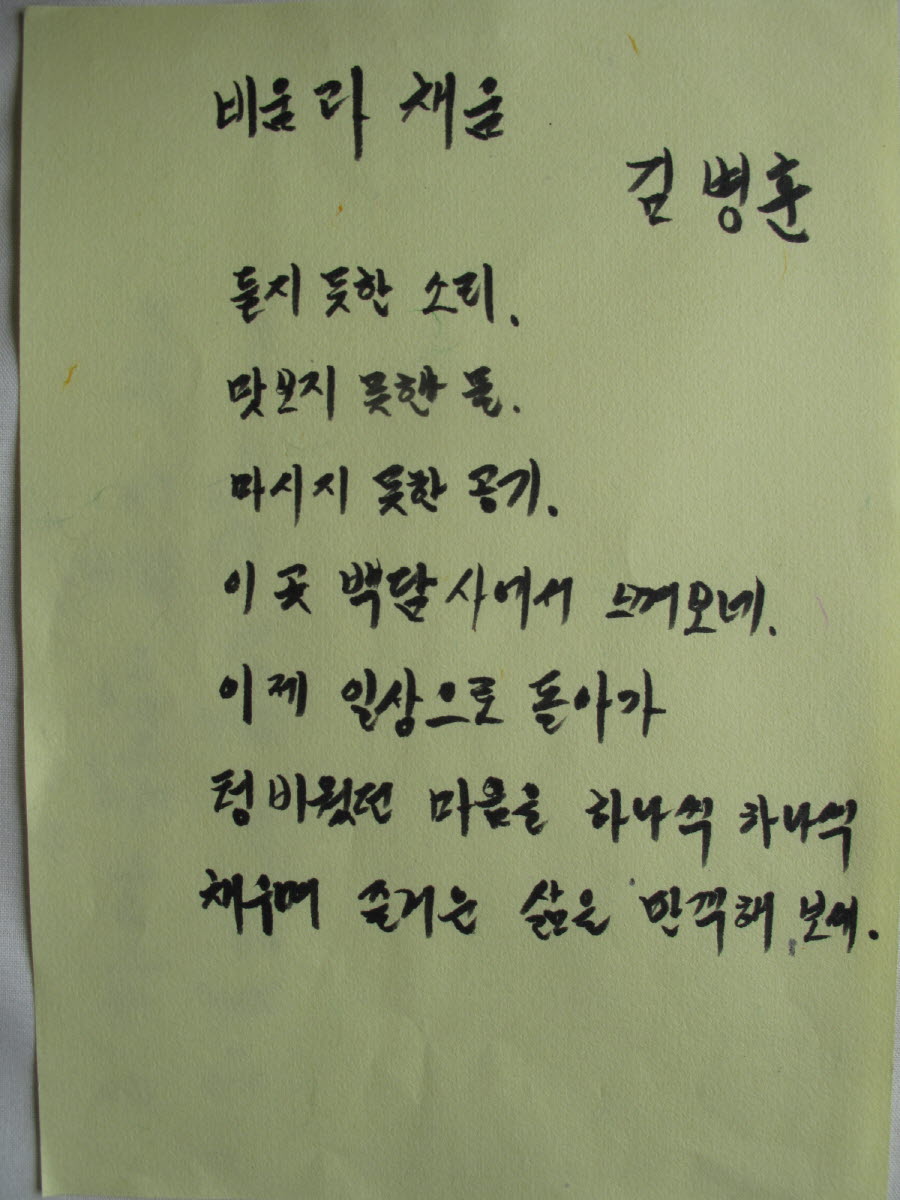 비움과 채움
김병훈
듣지 못한 소리.
맛보지 못한 물.
마시지 못한 공기.
이곳 백담사에서 느껴보네.
이제 일상으로 돌아가
텅비웠던 마음을 하나씩 하나씩
채우며 즐거운 삶을 만끽해 보세.